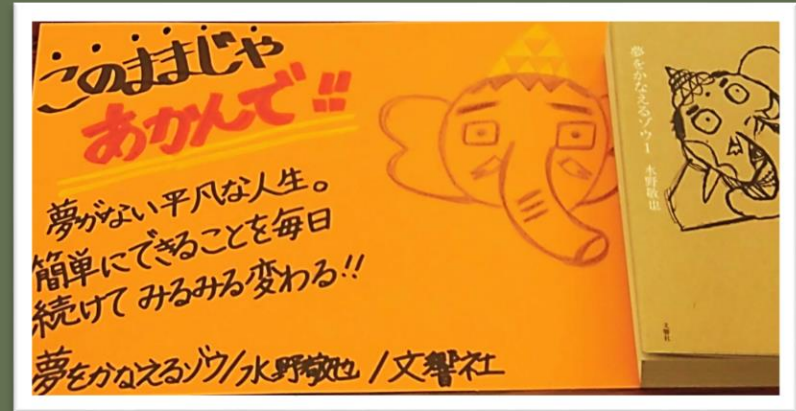 このままじゃ
あかんで!!
夢がない平凡な人生。
簡単にできることを毎日
続けて みるみる変わる!!
夢をかなえるゾウ/水野敬也/文響社
夢をかなえるゾウ1 水野敬也
文響社